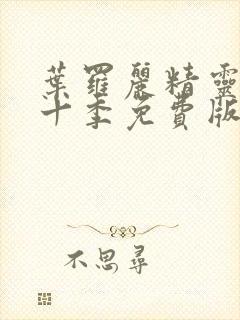 葉羅麗精靈
十季免費版
不思尋